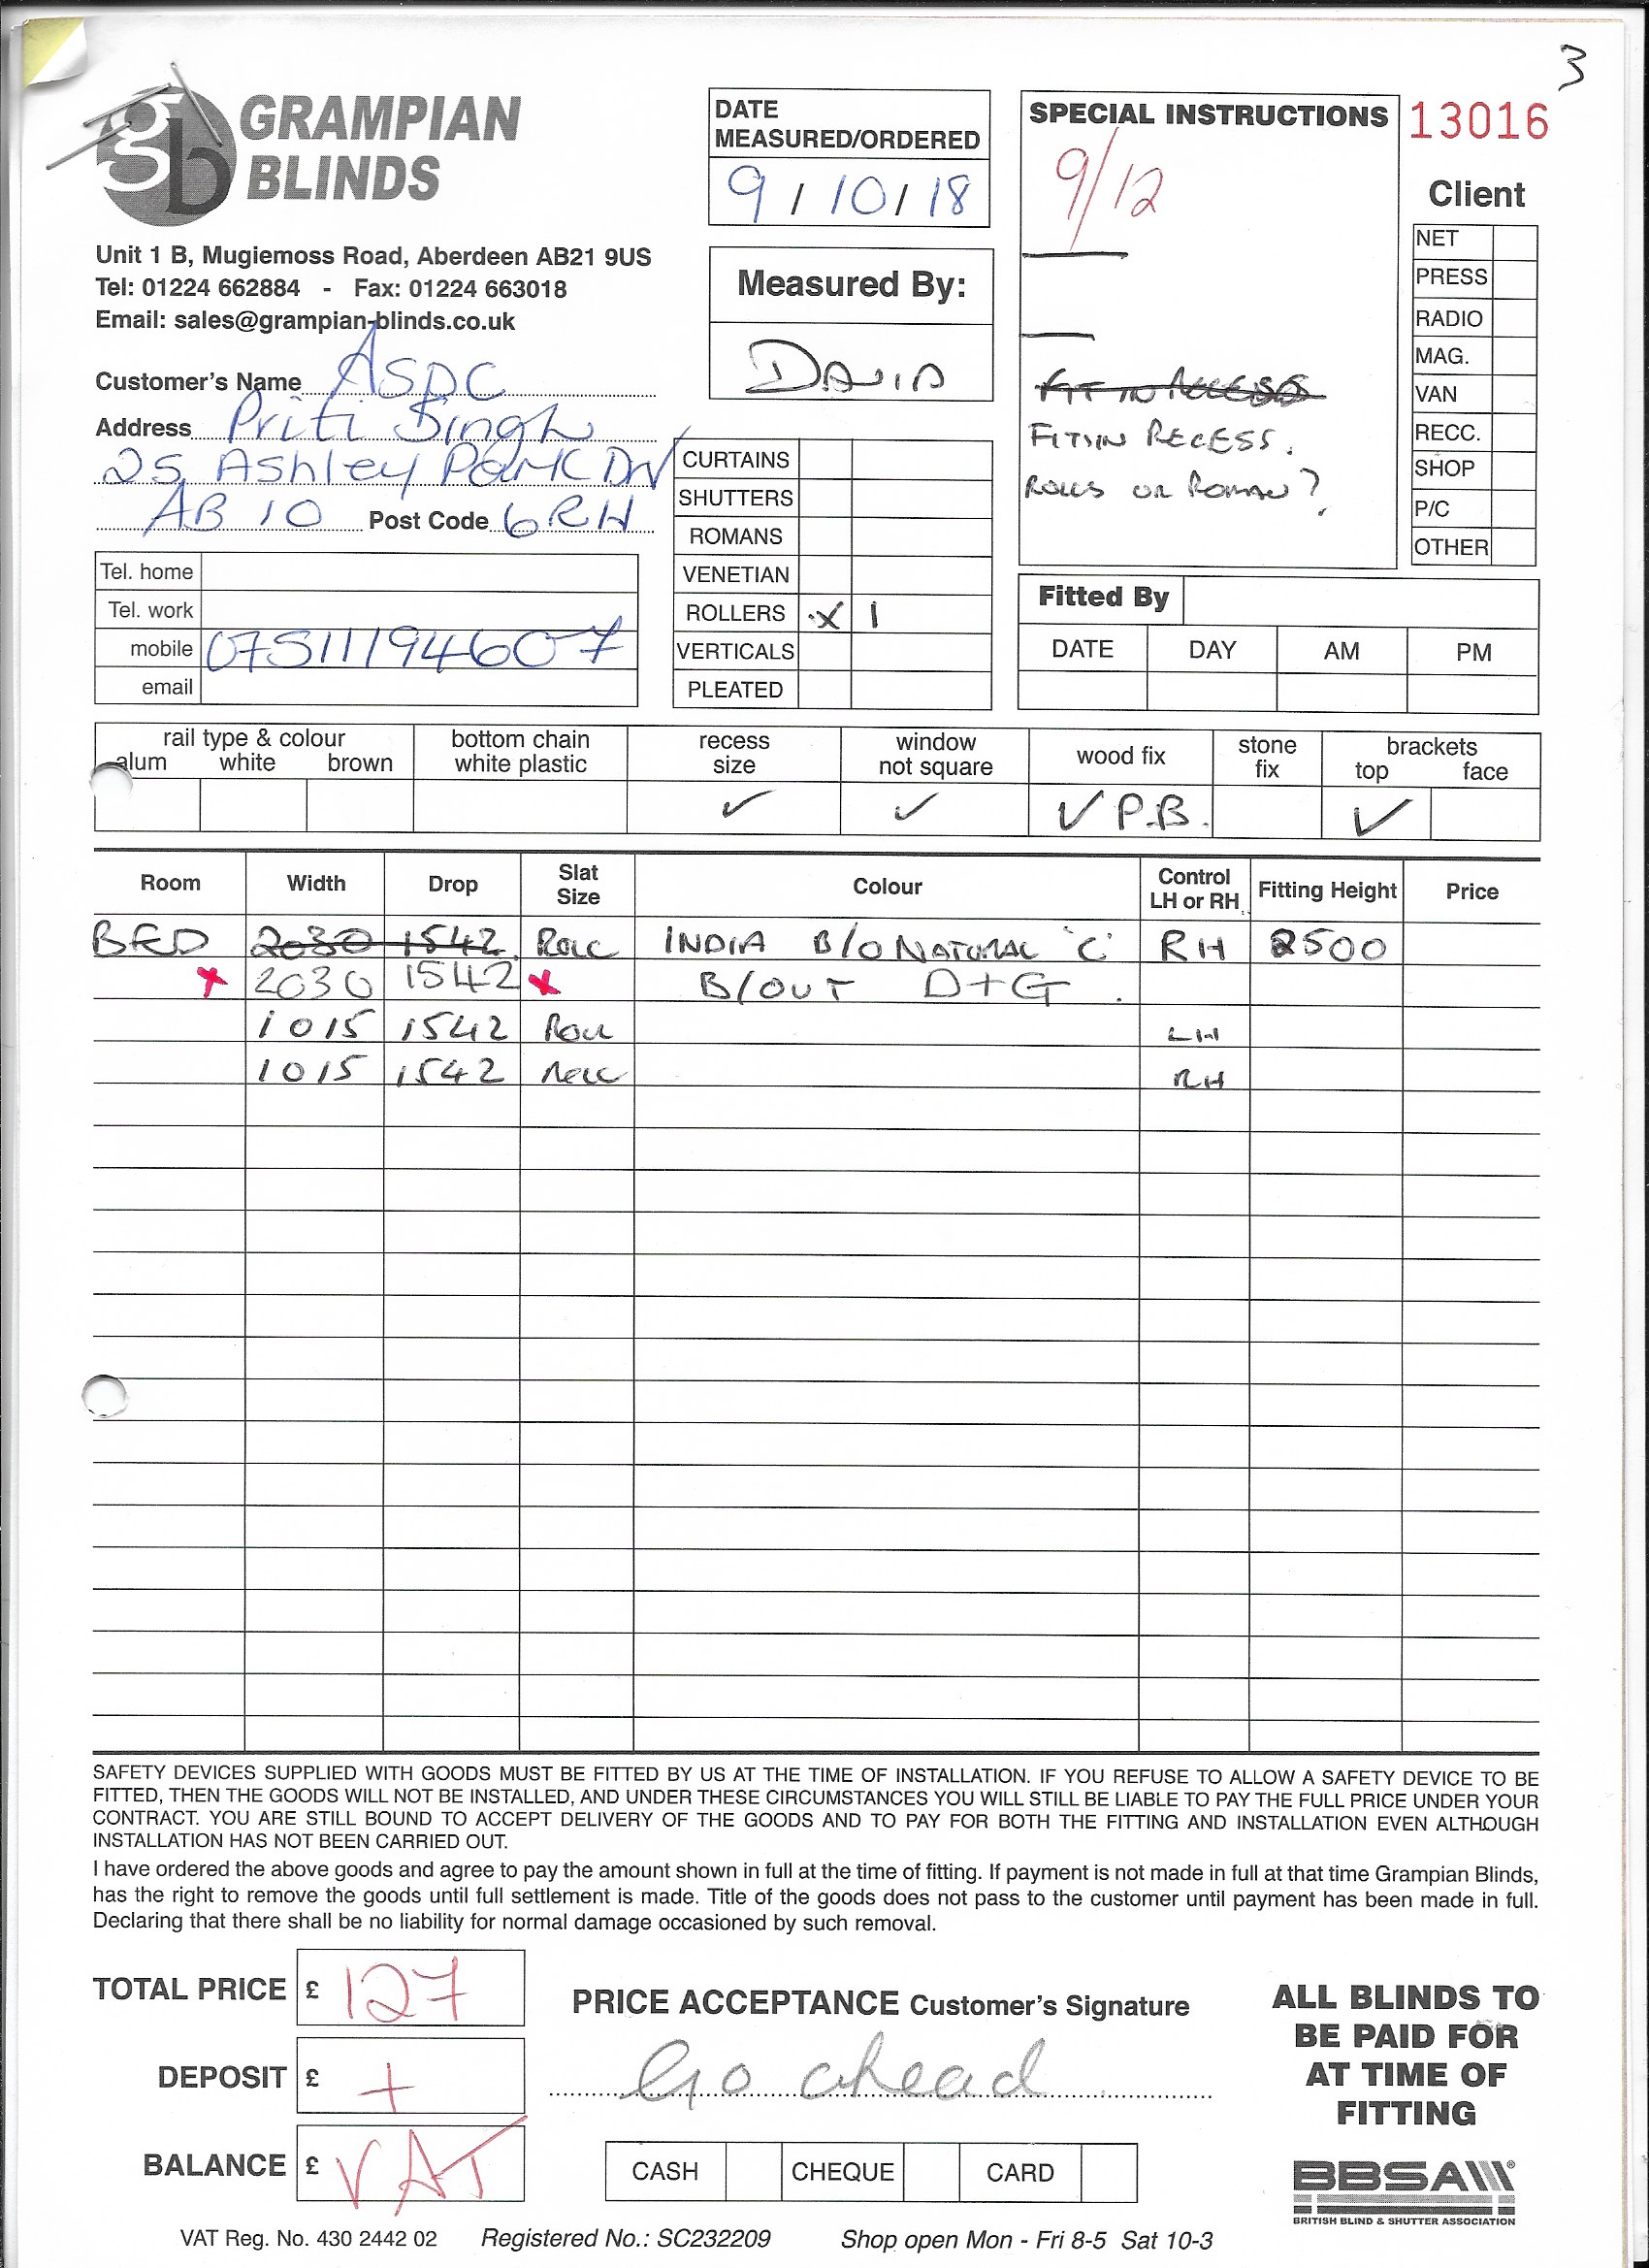 3
GRAMPIAN
BLINDS
Unit 1 B, Mugiemoss Road, Aberdeen AB21 9US
Tel: 01224 662884 - Fax: 01224 663018
Email: sales@grampian-blinds.co.uk
Customer's Name ASDC
Address Priti Singh
25 Ashley Park Dr
AB 10 Post Code 6RH
Tel. home
Tel. work
mobile 07511194607
email
DATE
MEASURED/ORDERED
9/10/18
Measured By:
DAVID
CURTAINS
SHUTTERS
ROMANS
VENETIAN
ROLLERS X 1
VERTICALS
PLEATED
SPECIAL INSTRUCTIONS
9/12
FIT IN RECESS
FITS IN RECESS.
ROLLS OR ROMAN?
13016
Client
NET
PRESS
RADIO
MAG.
VAN
RECC.
SHOP
P/C
OTHER
Fitted By
DATE DAY AM PM
rail type & colour
alum white brown
bottom chain
white plastic
recess
size
✓
window
not square
✓
wood fix
✓ P.B.
stone
fix
brackets
top face
✓
Room Width Drop Slat Size Colour Control LH or RH Fitting Height Price
BED 2030 1542 ROLL INDIA B/O NATURAL 'C' RH 2500
x 2030 1542 x B/OUT D+G.
1015 1542 ROLL LH
1015 1542 ROLL RH
SAFETY DEVICES SUPPLIED WITH GOODS MUST BE FITTED BY US AT THE TIME OF INSTALLATION. IF YOU REFUSE TO ALLOW A SAFETY DEVICE TO BE
FITTED, THEN THE GOODS WILL NOT BE INSTALLED, AND UNDER THESE CIRCUMSTANCES YOU WILL STILL BE LIABLE TO PAY THE FULL PRICE UNDER YOUR
CONTRACT. YOU ARE STILL BOUND TO ACCEPT DELIVERY OF THE GOODS AND TO PAY FOR BOTH THE FITTING AND INSTALLATION EVEN ALTHOUGH
INSTALLATION HAS NOT BEEN CARRIED OUT.
I have ordered the above goods and agree to pay the amount shown in full at the time of fitting. If payment is not made in full at that time Grampian Blinds,
has the right to remove the goods until full settlement is made. Title of the goods does not pass to the customer until payment has been made in full.
Declaring that there shall be no liability for normal damage occasioned by such removal.
TOTAL PRICE £ 127
DEPOSIT £ +
BALANCE £ VAT
PRICE ACCEPTANCE Customer's Signature
Go ahead
CASH CHEQUE CARD
ALL BLINDS TO
BE PAID FOR
AT TIME OF
FITTING
BBSA
BRITISH BLIND & SHUTTER ASSOCIATION
VAT Reg. No. 430 2442 02 Registered No.: SC232209 Shop open Mon - Fri 8-5 Sat 10-3